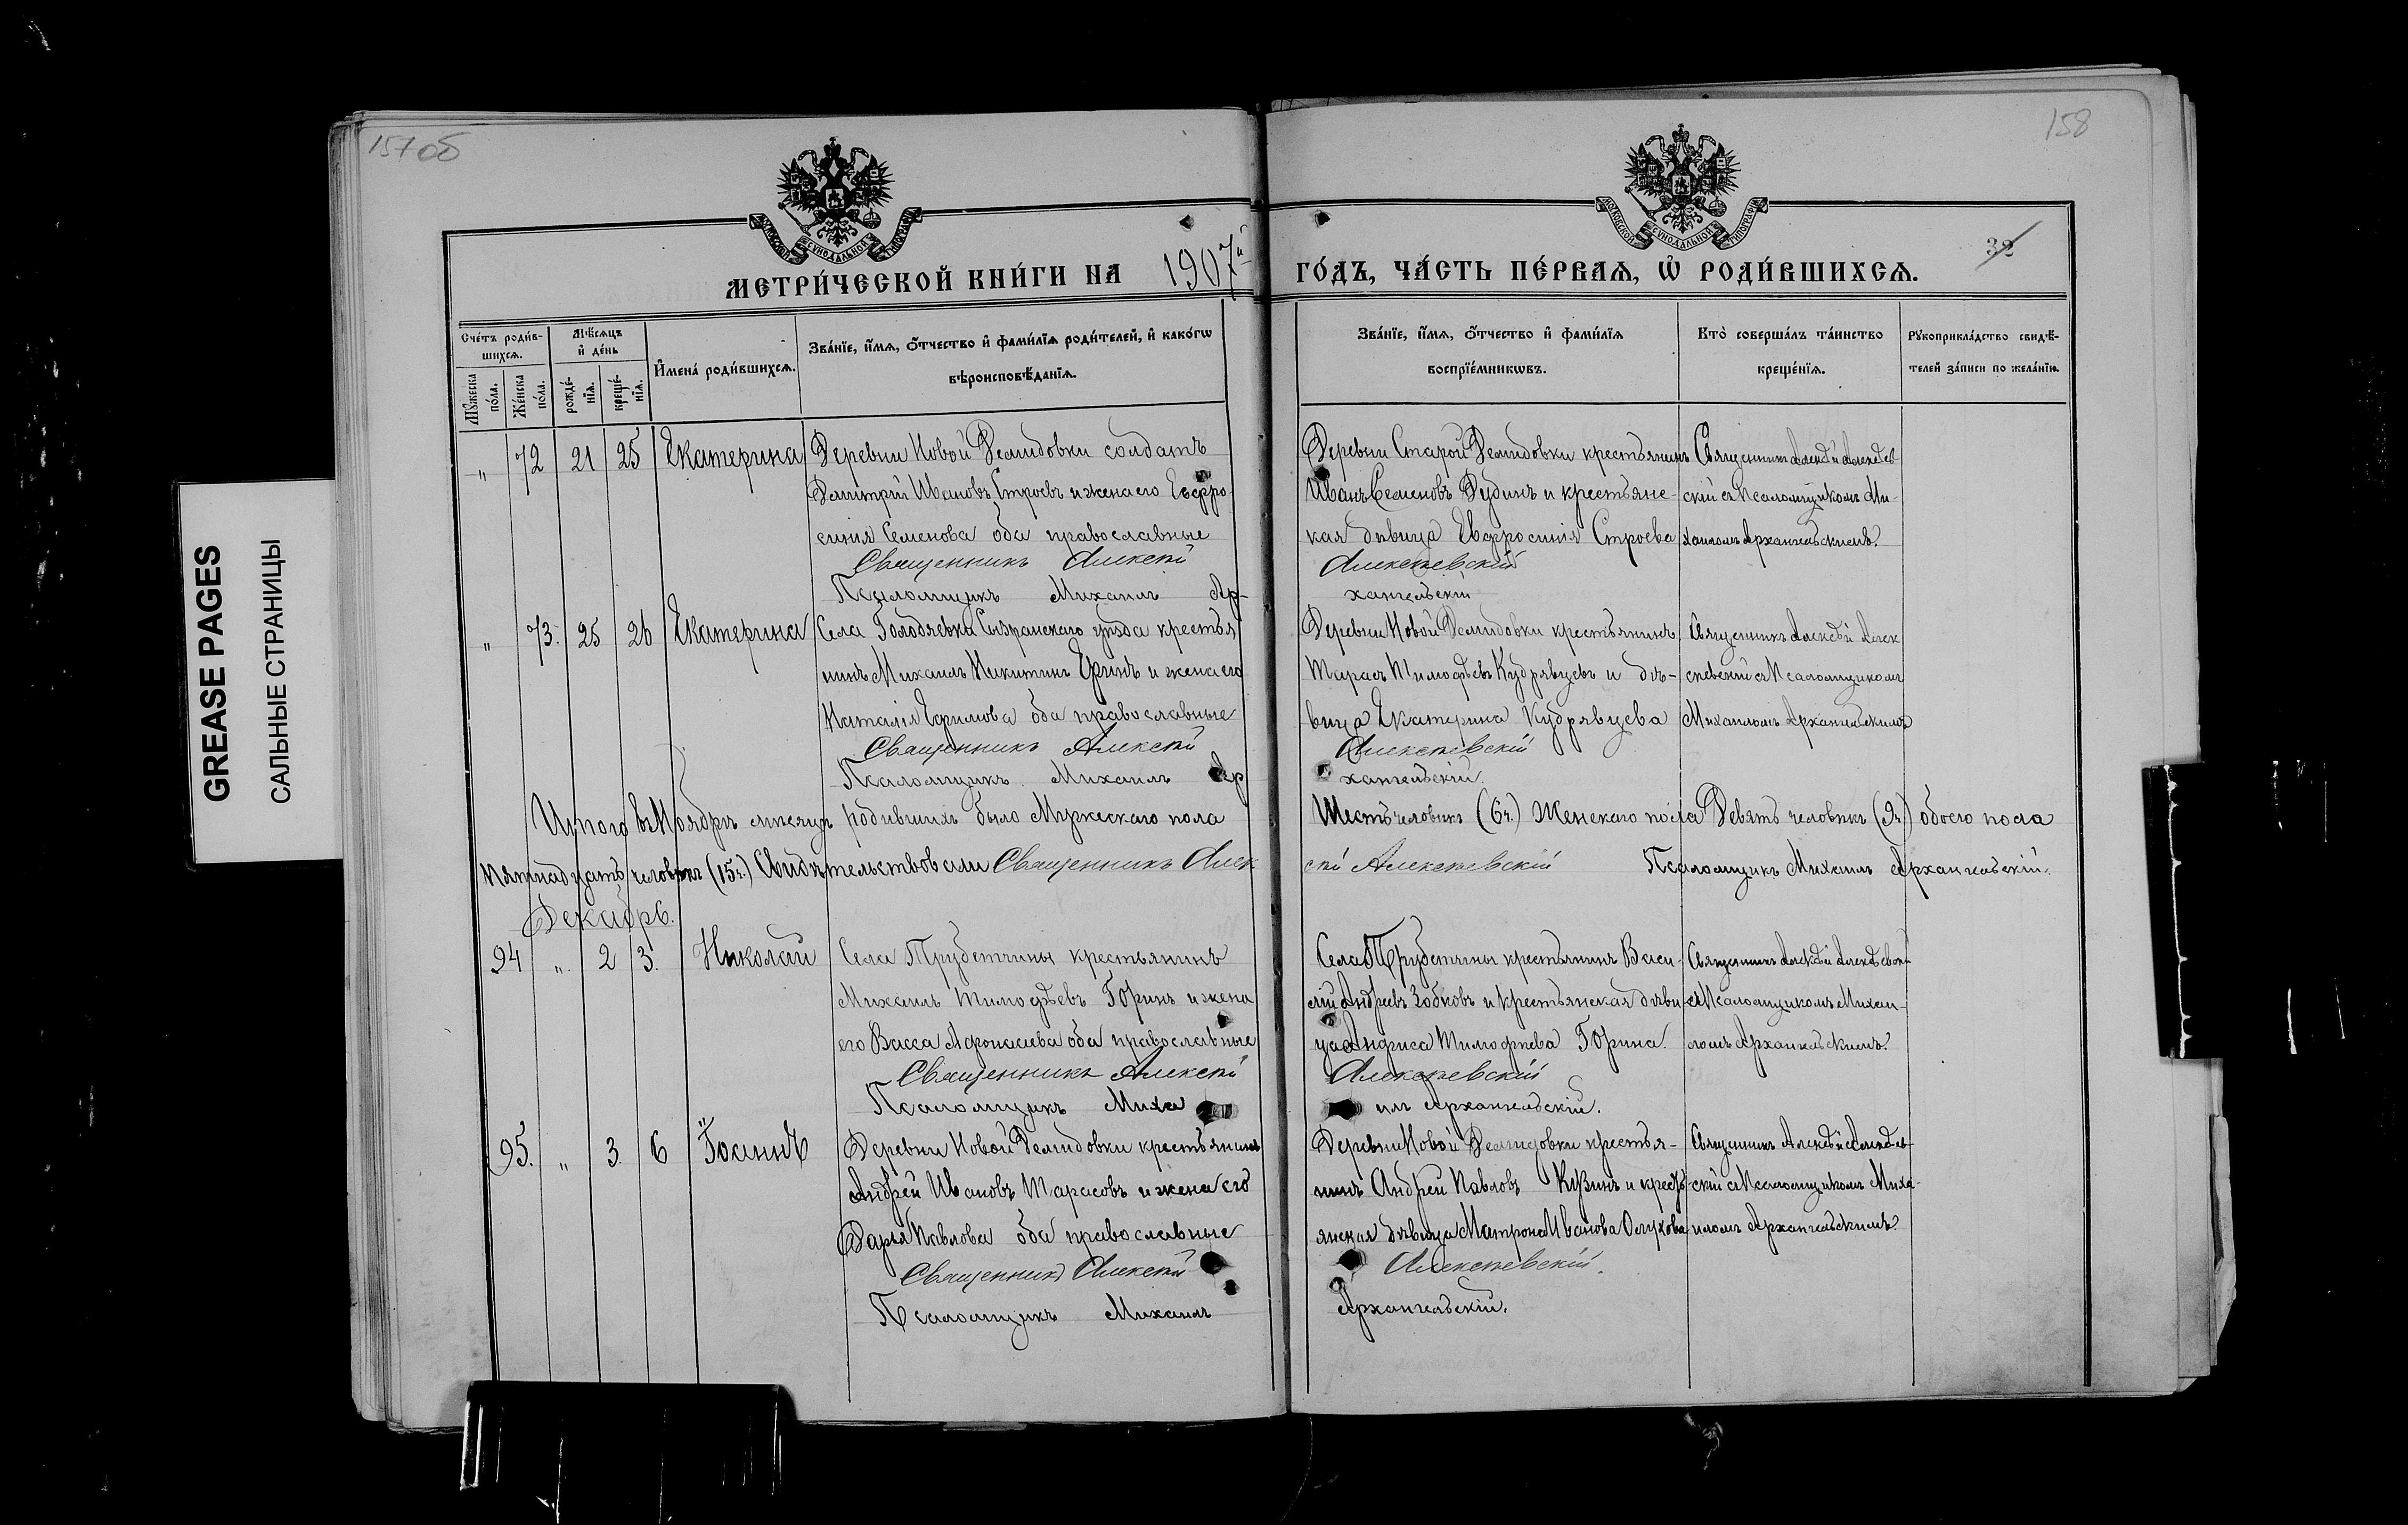 157 об
158
МОСКОВСКОЙ СѴНОДАЛЬНОЙ ТИПОГРАФІИ
МОСКОВСКОЙ СѴНОДАЛЬНОЙ ТИПОГРАФІИ
32
МЕТРИ́ЧЕСКОЙ КНИ́ГИ НА 1907й ГО́ДЪ, ЧА́СТЬ ПЕ́РВАѦ, Ѡ҆ РОДИ́ВШИХСѦ.
Сче́тъ роди́в-
шихсѧ.
Мꙋ́жеска
по́ла.
Же́нска
по́ла.
Мѣ́сѧцъ
и҆ де́нь
рожде́-
нїѧ.
креще́-
нїѧ.
И҆мена̀ роди́вшихсѧ.
Зва́нїе, и҆́мѧ, ѻ҆́тчество и҆ фами́лїѧ роди́телей, и҆ како́гѡ
вѣроисповѣ́данїѧ.
Зва́нїе, и҆́мѧ, ѻ҆́тчество и҆ фами́лїѧ
воспрїе́мникѡвъ.
Кто̀ соверша́лъ та́инство
креще́нїѧ.
Рꙋкоприкла́дство свидѣ́-
телей за́писи по жела́нїю.
„ 72 21 25 Екатерина
Деревни Новой Демидовки солдатъ
Димитрій Ивановъ Строевъ и жена его Евфро-
синія Семенова оба православные
Священникъ Алексѣй
Псаломщикъ Михаилъ Ар-
Деревни Старой Демидовки крестьянинъ
Иванъ Семеновъ Дудинъ и крестьянс-
кая дѣвица Евфросинія Строева
Алексѣевскій
хангельскій
Священникъ Алексѣй Алексѣев-
скій съ Псаломщикомъ Ми-
хаиломъ Архангельскимъ.
„ 73. 25 26 Екатерина
Села Голодяевки Сызранскаго уѣзда крестья
нинъ Михаилъ Никитинъ и жена его
Наталія Ефимова оба православные
Священникъ Алексѣй
Псаломщикъ Михаилъ Ар
Деревни Новой Демидовки крестьянинъ
Тарасъ Тимофѣевъ Кудрявцевъ и дѣ-
вица Екатерина Кудрявцева
Алексѣевскій
хангельскій.
Священникъ Алексѣй Алек
сѣевскій съ Псаломщикомъ
Михаиломъ Архангельскимъ
Итого въ Ноябрѣ мѣсяцѣ родившихъ было Мужескаго пола Шесть человѣкъ (6ч.) Женскаго пола Девять человѣкъ (9ч.) обоего пола
Пятнадцать человѣкъ (15ч.) Свидѣтельствовали Священникъ Алексѣй Алексѣевскій Псаломщикъ Михаилъ Архангельскій.
Декабрь.
94 „ 2 3. Николай
Села Трубетчины крестьянинъ
Михаилъ Тимофѣевъ Горинъ и жена
его Васса Афонасиева оба православные
Священникъ Алексѣй
Псаломщикъ Миха
Села Трубетчины крестьянинъ Васи-
лій Андреевъ Зобковъ и крестьянская дѣви-
ца Анфиса Тимофѣева Горина.
Алексѣевскій
илъ Архангельскій.
Священникъ Алексѣй Алексѣевскій
съ Псаломщикомъ Михаи-
ломъ Архангельскимъ.
95. „ 3. 6 Іоаннъ
Деревни Новой Демидовки крестьянинъ
Андрей Ивановъ Тарасовъ и жена его
Дарья Павлова оба православные
Священникъ Алексѣй
Псаломщикъ Михаилъ
Деревни Новой Демидовки крестья-
нинъ Андрей Павловъ и кресть-
янская дѣвица Матрона Иванова
Алексѣевскій.
Архангельскій.
Священникъ Алексѣй Алексѣев-
скій съ Псаломщикомъ Миха-
иломъ Архангельскимъ.
GREASE PAGES
САЛЬНЫЕ СТРАНИЦЫ